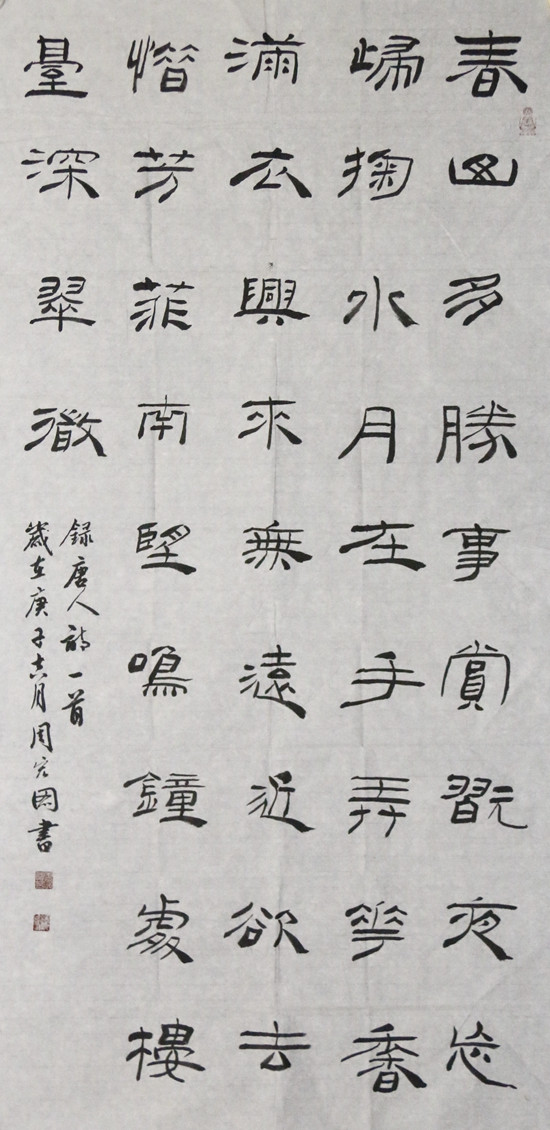 春山多勝事賞翫夜忘
歸掬水月在手弄華香
滿衣興來無遠近欲去
惜芳菲南望鳴鐘處樓
臺深翠微
録唐人詩一首
歲在庚子六月周宏國書